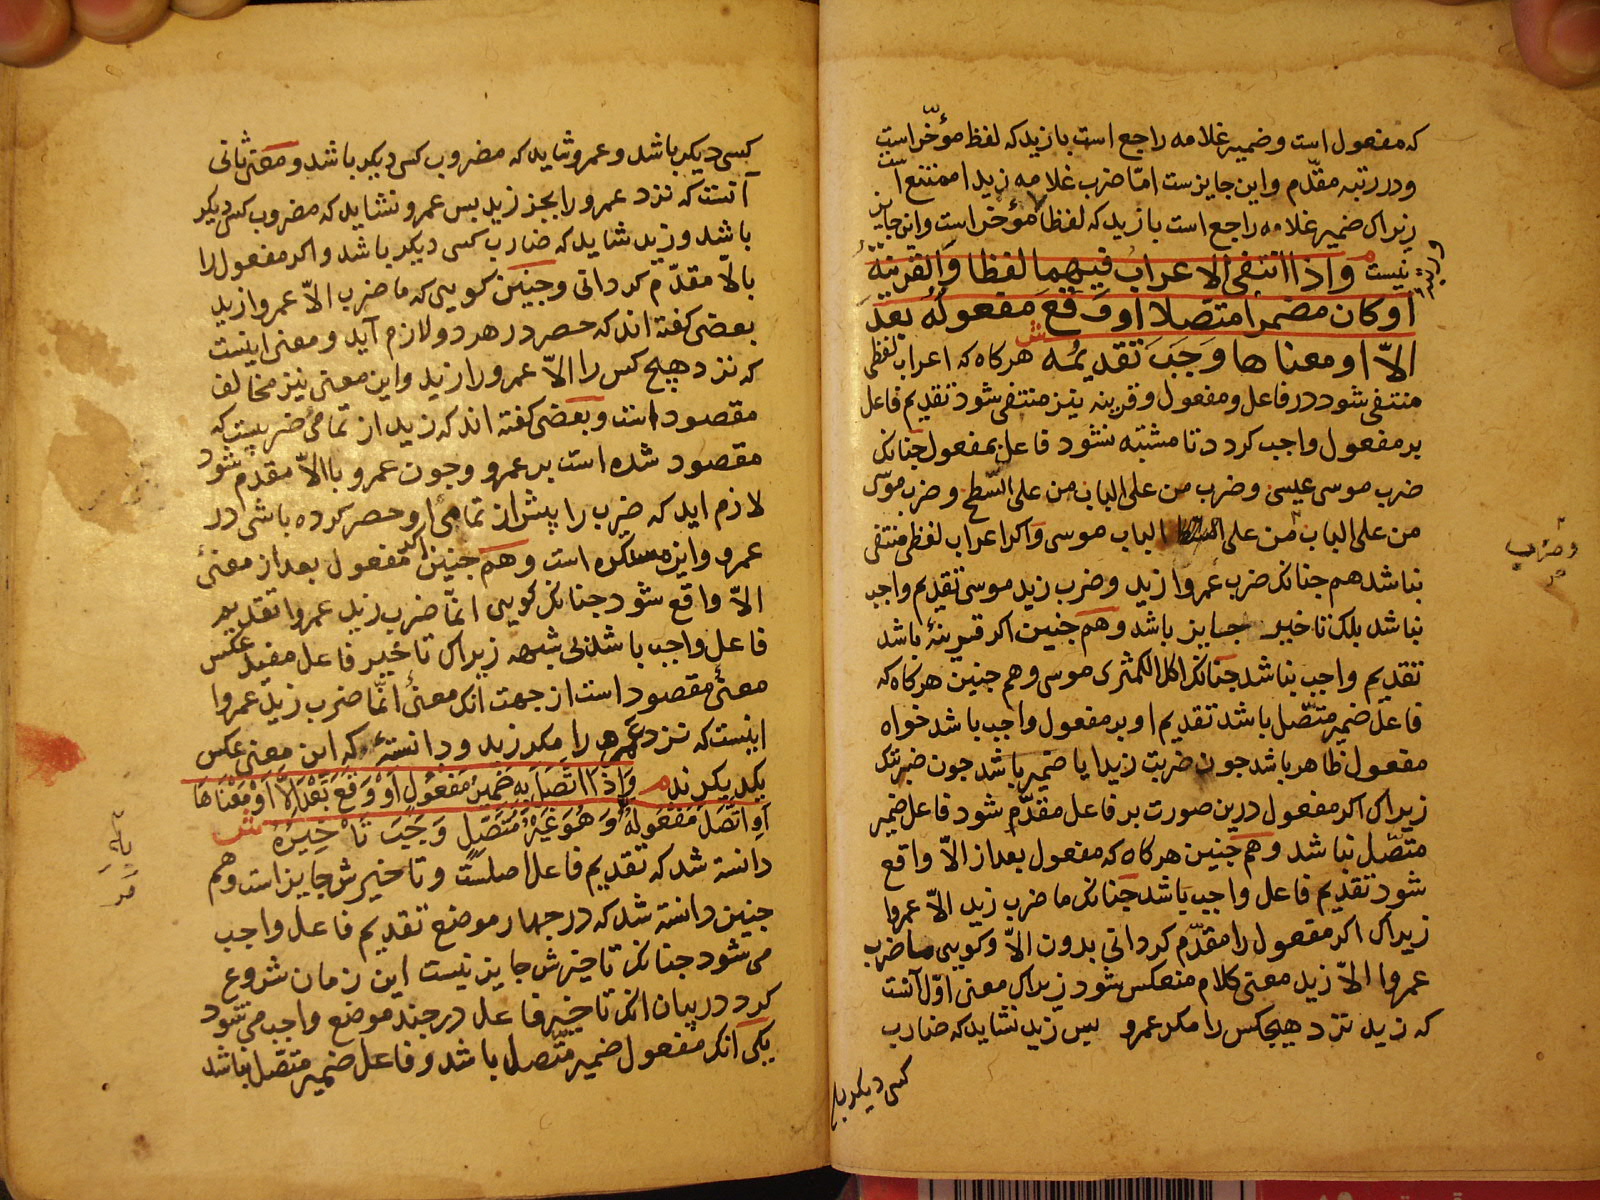 که مفعول است و ضمیر غلامه راجع است بازید که لفظ مؤخّر است
و در رتبه مقدّم و این جایزست امّا ضرب غلامه زیدا ممتنع است
زیراک ضمیر غلامه راجع است بازید که لفظا مؤخر است واین جایز
نیست واذا انتفی الاعراب فیهما لفظا والقرینة
اوکان مضمرا متصلا او وقع مفعوله بعد
الاّ او معناها وجب تقدیمه هرکاه که اعراب لفظی
منتفی شود در فاعل و مفعول و قرینه نیز منتفی شود تقدیم فاعل
بر مفعول واجب کردد تا مشتبه نشود فاعل بمفعول جنانک
ضرب موسی عیسی و ضرب من علی الباب من علی السّطح و ضرب موسی
من علی الباب من علی الباب موسی و اکر اعراب لفظی منتفی
نباشد هم جنانک ضرب عمروا زید و ضرب زید موسی تقدیم واجب
نباشد بلک تاخیر جایز باشد و هم جنین اکر قرینهٔ باشد
تقدیم واجب نباشد جنانک اکل الکمثری موسی وهم جنین هرکاه که
فاعل ضمیر متّصل باشد تقدیم او بر مفعول واجب باشد خواه
مفعول ظاهر باشد جون ضربت زیدا یا ضمیر باشد جون ضربتک
زیراک اکر مفعول درین صورت بر فاعل مقدّم شود فاعل ضمیر
متّصل نباشد و هم جنین هرکاه که مفعول بعد از الاّ واقع
شود تقدیم فاعل واجب باشد جنانک ما ضرب زید الاّ عمروا
زیراک اکر مفعول را مقدّم کردانی بدون الاّ و کویی ما ضرب
عمروا الاّ زید معنی کلام منعکس شود زیراک معنی اوّل آنست
که زید نزد هیجکس را مکر عمرو بس زید نشاید که ضارب
کسی دیکر با
و ضرب
کسی دیکر باشد و عمرو شاید که مضروب کسی دیکر باشد و معنی ثانی
آنست که نزد عمرو را بجز زید بس عمرو نشاید که مضروب کسی دیکر
باشد و زید شاید که ضارب کسی دیکر باشد و اکر مفعول را
بالاّ مقدّم کردانی وجنین کویی که ما ضرب الاّ عمروا زید
بعضی کفته اند که حصر در هر دو لازم آید و معنی اینست
که نزد هیچ کس را الاّ عمرو را زید و این معنی نیز مخالف
مقصود است و بعضی کفته اند که زید از تمامی ضربیست که
مقصود شده است بر عمرو وجون عمرو با الاّ مقدم شود
لازم اید که ضرب را پیش از تمامی او حصر کرده باشی در
عمرو و این مستکره است و هم جنین اکر مفعول بعد از معنی
الاّ واقع شود جنانک کویی انمّا ضرب زید عمروا تقدیم
فاعل واجب باشد بی شبهه زیراک تاخیر فاعل مفید عکس
معنی مقصود است از جهت انک معنی انّما ضرب زید عمروا
اینست که نزد عمرو را مکر زید و دانستهٔ که این معنی عکس
یکدیکرند واذا اتصل به ضمیر مفعول او وقع بعد الاّ او معناها
او اتّصل مفعوله و هو غیر متّصل وجب تاخیره
دانسته شد که تقدیم فاعل اصلست و تاخیرش جایز است و هم
جنین دانسته شد که در جهار موضع تقدیم فاعل واجب
می شود جنانک تاخیرش جایز نیست این زمان شروع
کرد در بیان انک تاخیر فاعل در جند موضع واجب می شود
یکی آنک مفعول ضمیر متّصل باشد و فاعل ضمیر متّصل نباشد